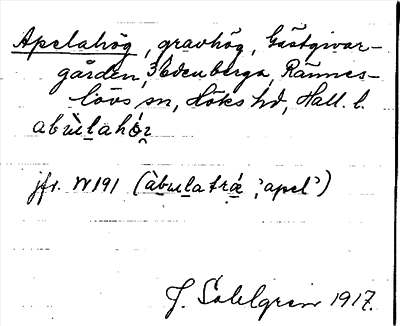 Apelahög, gravhög, Gästgivar-
gården, Edenberga, Rännes-
lövs sn, Höks hd, Hall. l.
abùlahó̰r
jfr. W191 (àbulatræ̀ 'apel')
J. Sahlgren 1917.